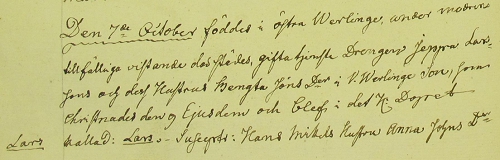 Den 7de October föddes i östra Werlinge, under modrens
tillfälliga vistande dasstädes, gifta tjenste Drengen Jeppa Lar-
sons och dess Hustrus Bengta Jöns Der i V. Werlinge Son, som
Christnades den 9 Ejusdem och blef i det H. Dopet
Lars kallad: Lars. - Suscepts: Hans Nikels Hustru Anna Johns Der